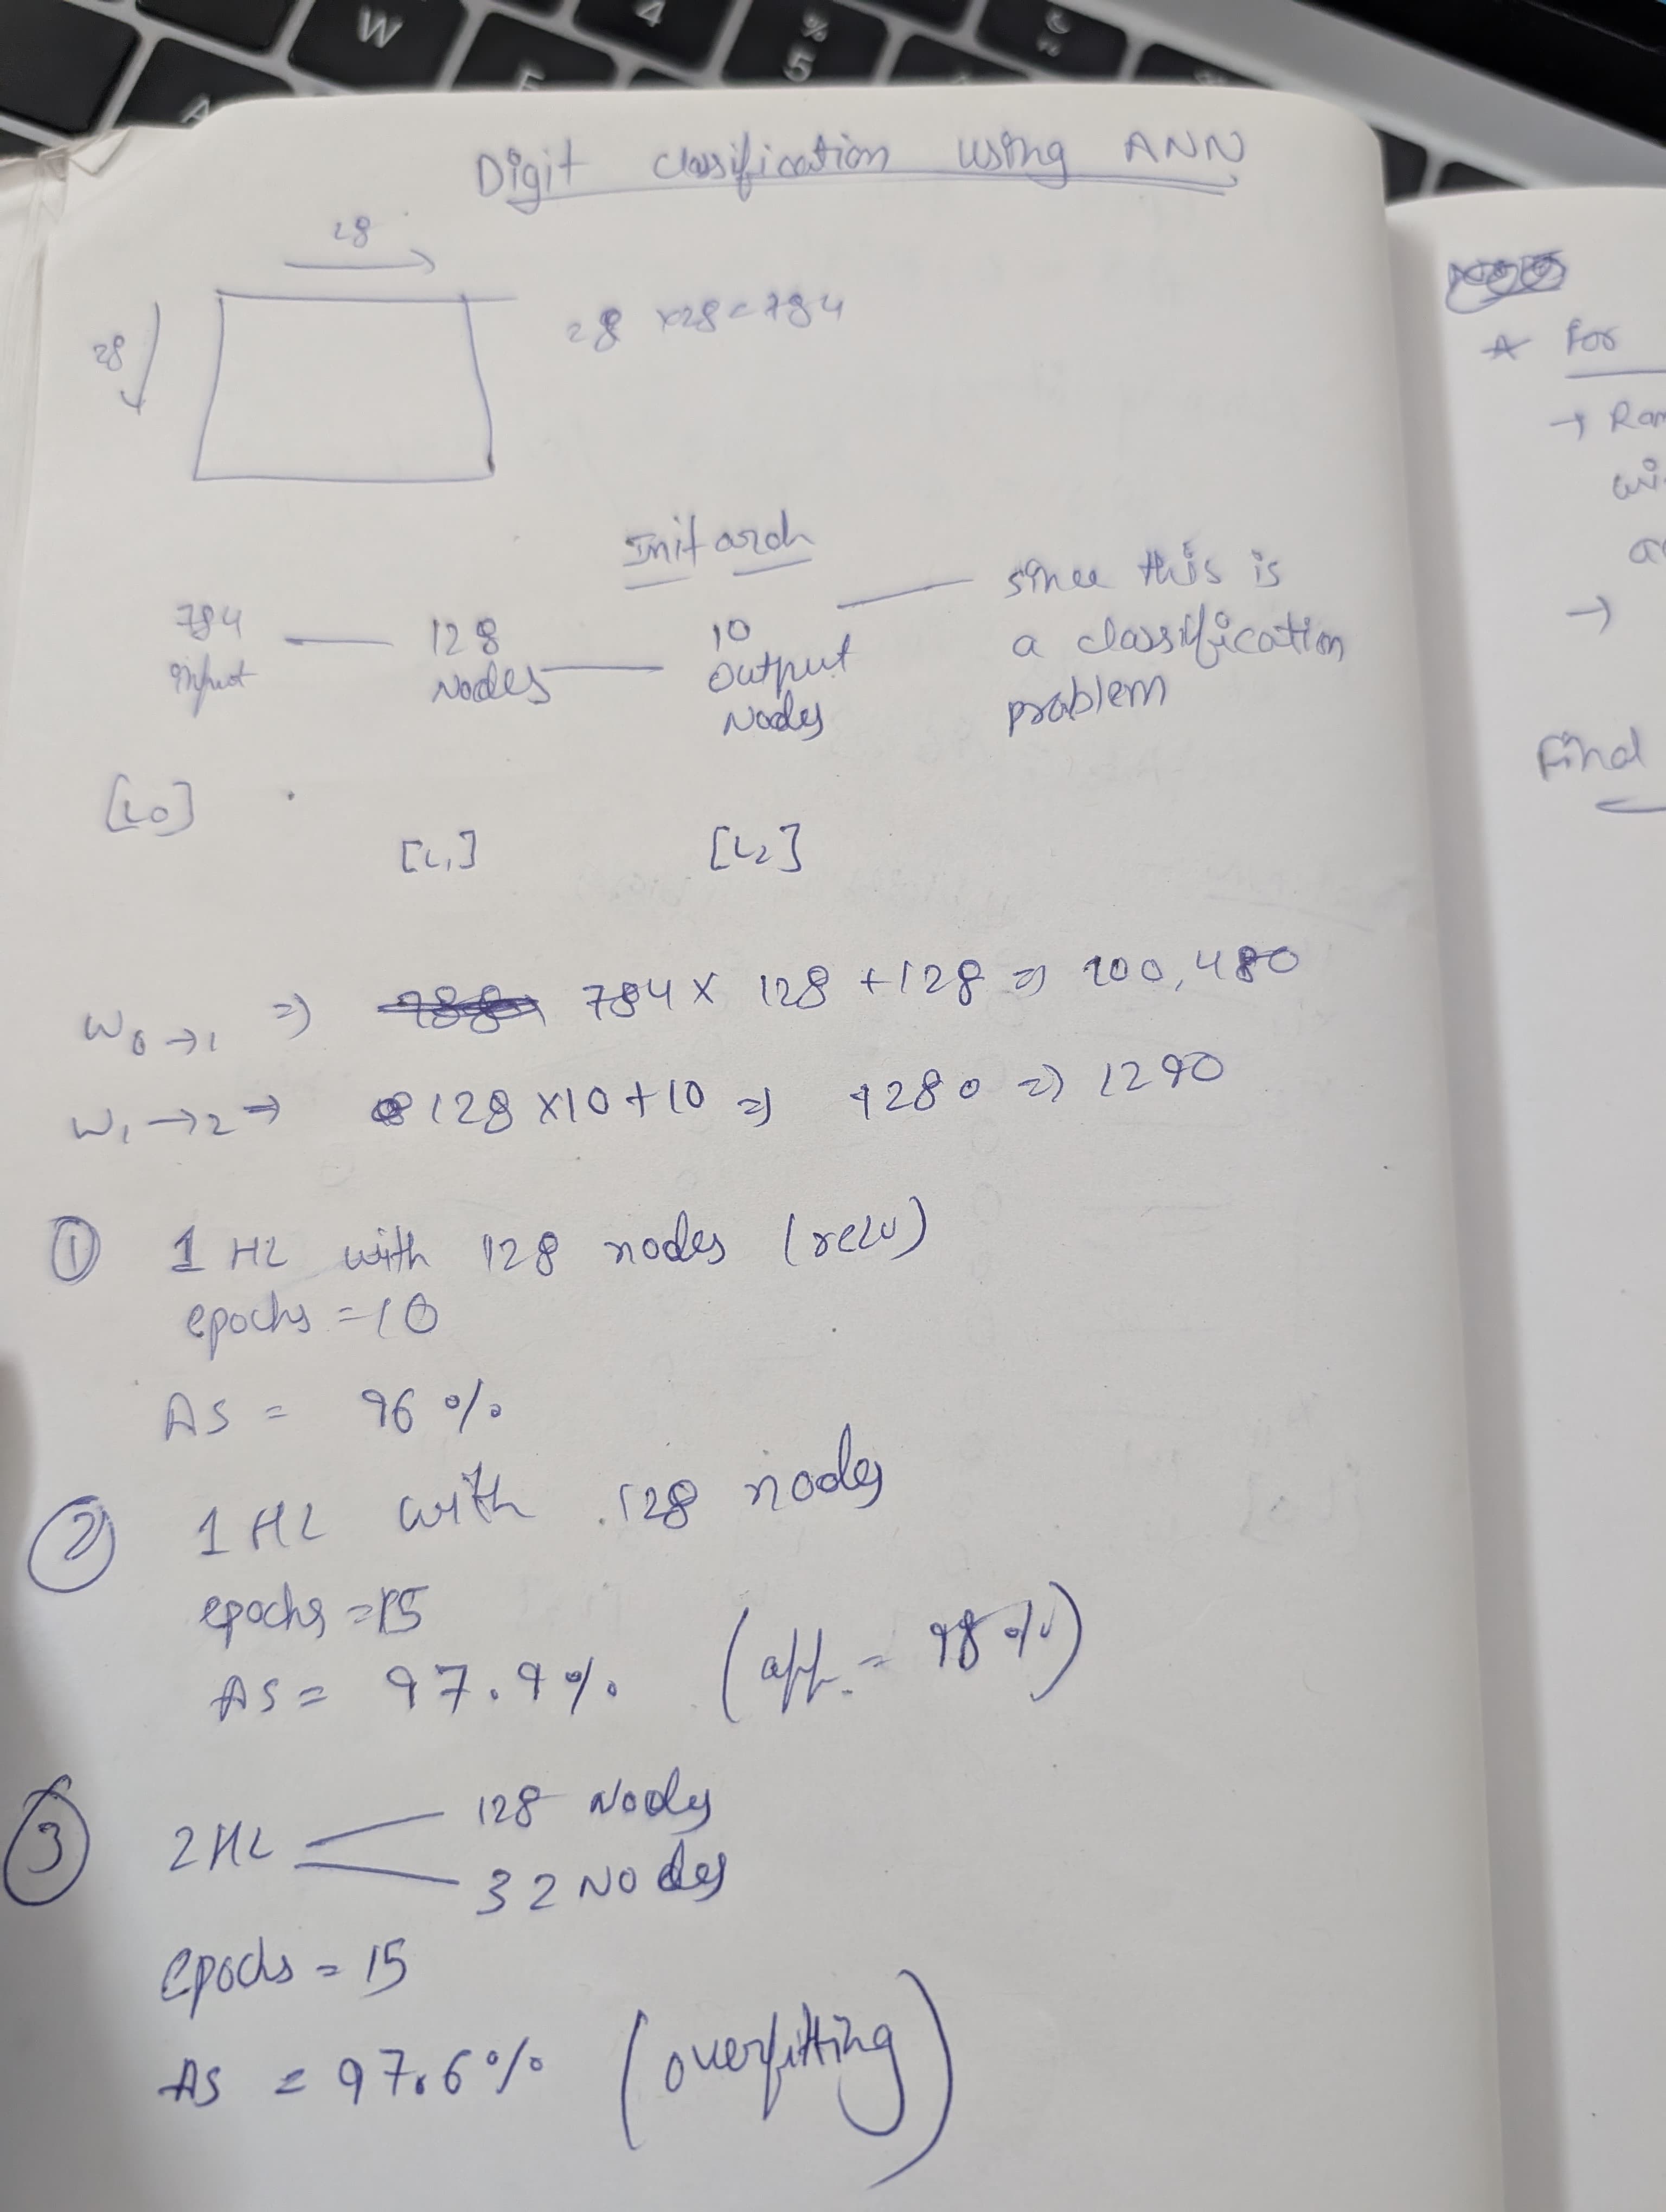 W
4
%
5
E
A
Digit classification using ANN
28
28
28 x28 = 784
Init arch
784 input
128 Nodes
10 output Nodes
since this is
a classification
problem
[L0]
[L1]
[L2]
W0→1 => 784 x 128 + 128 => 100,480
W1→2 → 128 x10 + 10 => 1280 => 1290
① 1 HL with 128 nodes (relu)
epochs = 10
AS = 96 %
② 1 HL with 128 nodes
epochs = 15
AS = 97.9%. (app. = 98%)
③ 2 HL
128 Nodes
32 Nodes
epochs = 15
AS = 97.6% (overfitting)
* For
→ Ran
wi
→
Find